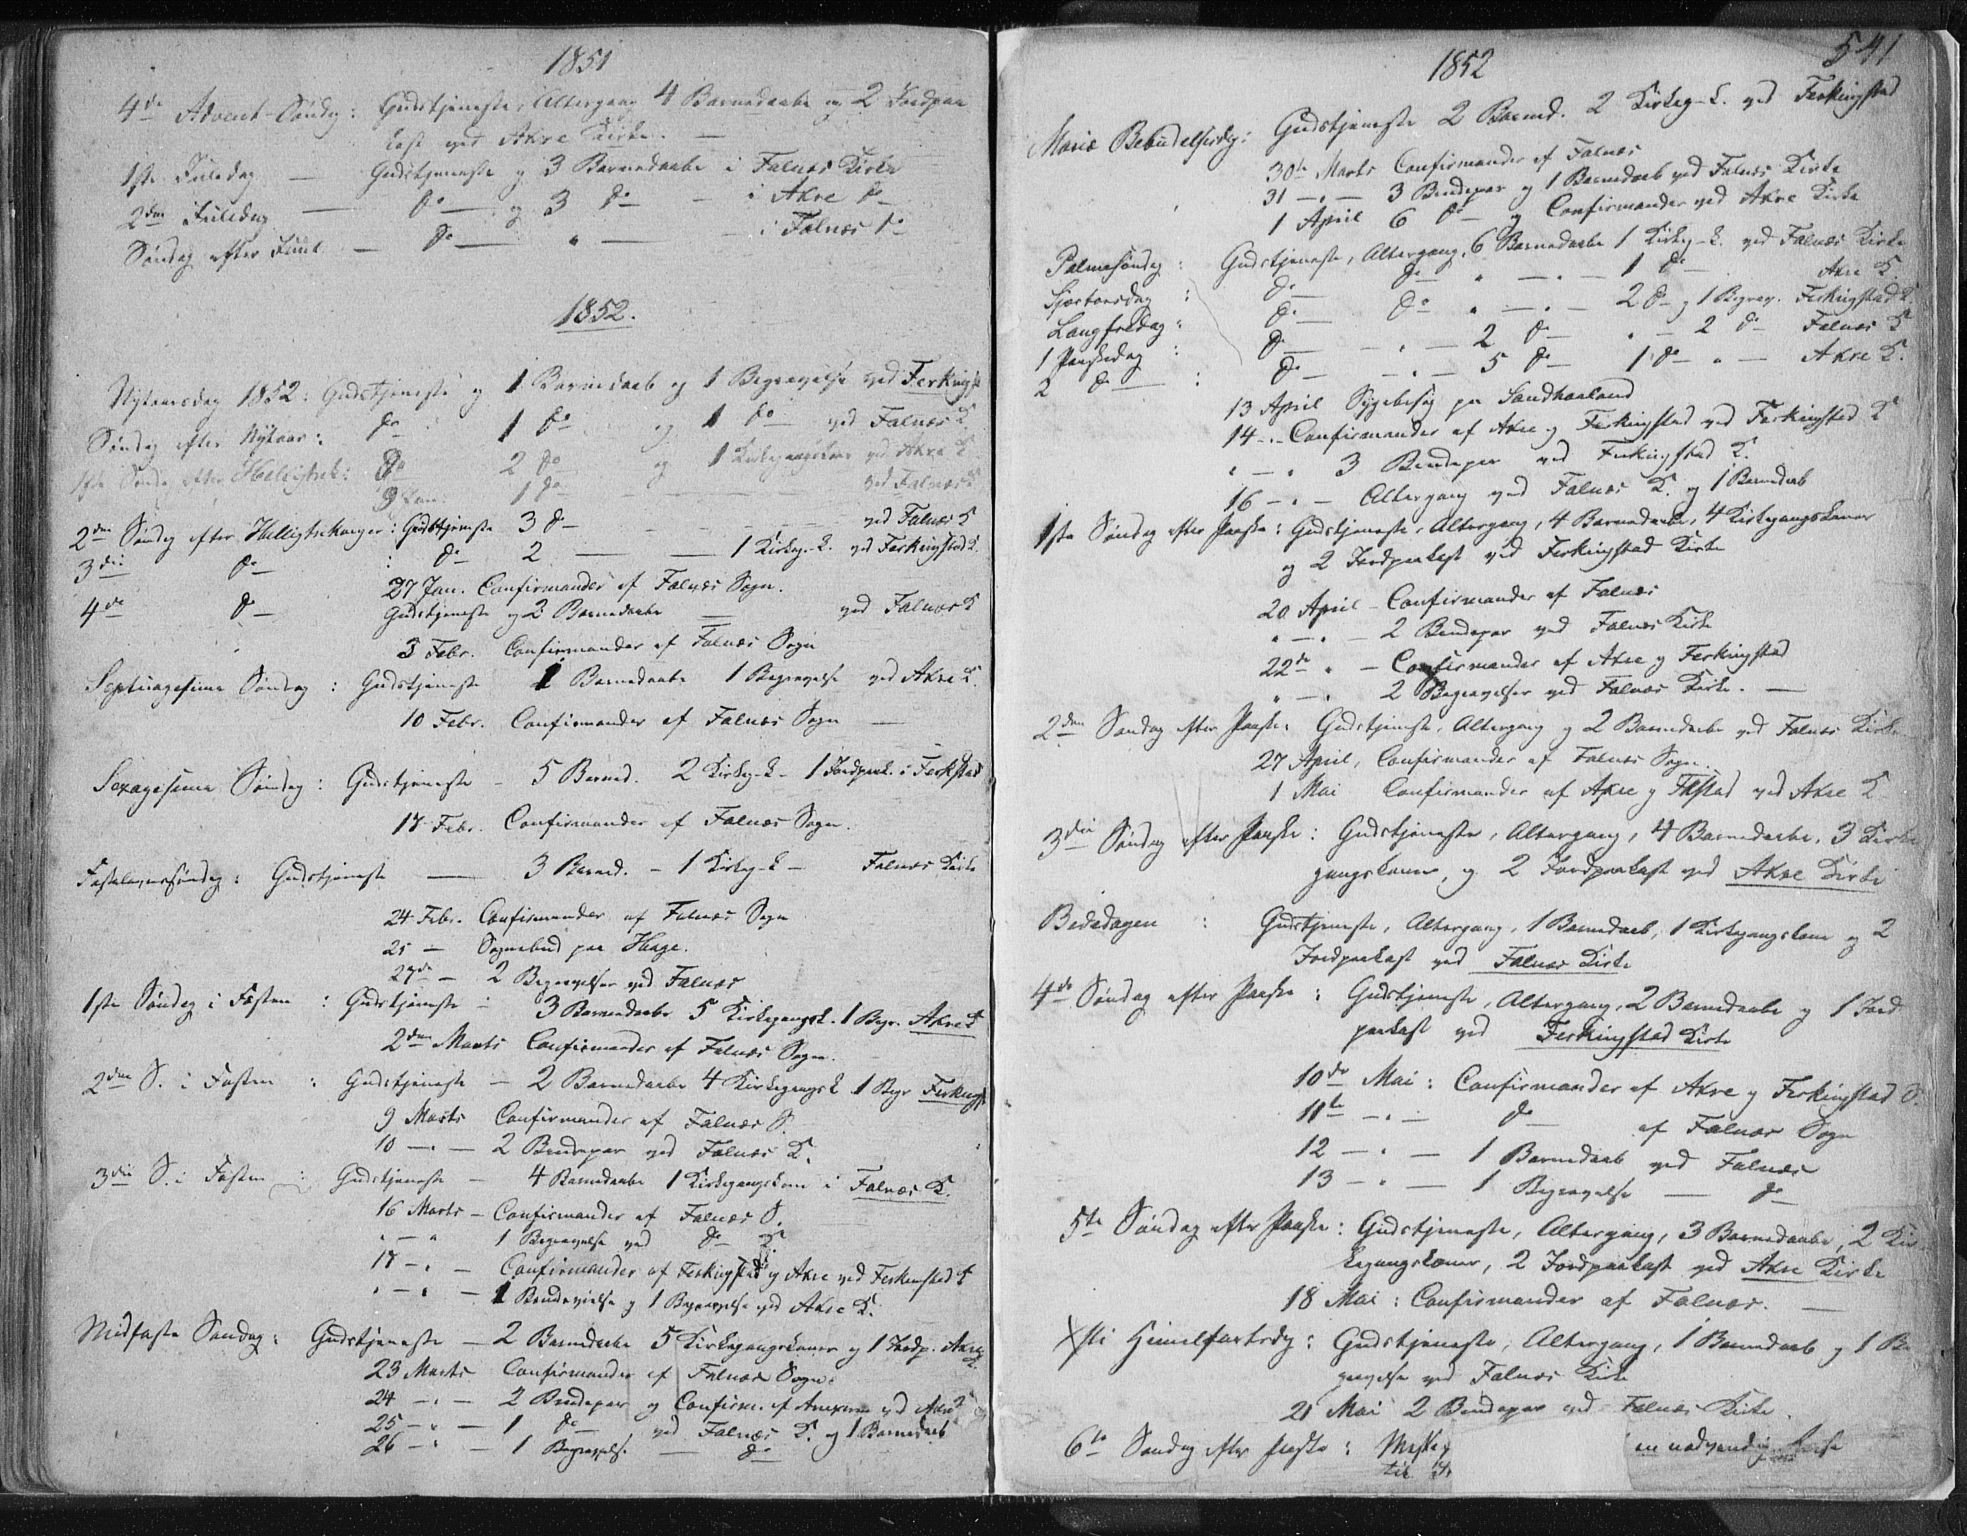 1851
4de Advent-Søndag: Gudstjeneste, Altergang 4 Barnedaabe og 2 Jordpaa
kast ved Akre Kirke. —
1ste Juledag — Gudstjeneste og 3 Barnedaabe i Falnæs Kirke
2den Juledag — do — og 3 do — i Akre do
Søndag efter Juul — do — " — i Falnæs do
1852.
Nytaarsdag 1852: Gudstjeneste og 1 Barnedaab og 1 Begravelse ved Ferkingst
Søndag efter Nytaar: do 1 do og 1 do ved Falnæs K
1ste Sønd. efter Helligtrek: do 2 do og 1 Kirkegangskone ved Akre K
9 Jan. 1 do — ved Falnæs K
2den Søndag efter Helligtrekonger: Gudstjeneste 3 do — ved Falnæs K
3die do : do 2 — 1 Kirkeg.-k. ved Ferkingstad K.
27 Jan. Confirmander af Falnæs Sogn.
4de do Gudstjeneste og 2 Barnedaabe — ved Falnæs K
3 Febr. Confirmander af Falnæs Sogn
Septuagesima Søndag : Gudstjeneste 1 Barnedaabe 1 Begravelse ved Akre K.
10 Febr. Confirmander af Falnæs Sogn —
Sexagesima Søndag : Gudstjeneste - 5 Barned. 2 Kirkeg-k - 1 Jordpaak. i Ferkstad
17 Febr. Confirmander af Falnæs Sogn.
Fastelavnssøndag : Gudstjeneste — 3 Barned. - 1 Kirkeg-k - Falnæs Kirke
24 Febr. Confirmander af Falnæs Sogn
25 — Sognebud paa Hauge.
27de — 2 Begravelser ved Falnæs
1ste Søndag i Fasten : Gudstjeneste - 3 Barnedaabe 5 Kirkegangsk. 1 Begr. Akre K
2den Marts Confirmander af Falnæs Sogn.
2den S. i Fasten : Gudstjeneste — 2 Barnedaabe 4 Kirkegangsk 1 Begr Ferkingst
9 Marts Confirmander af Falnæs S.
10 —"— 2 Brudepar ved Falnæs K.
3die S. i Fasten : Gudstjeneste — 4 Barnedaabe 1 Kirkegangskone i Falnæs K.
16 Marts — Confirmander af Falnæs S.
" — " 1 Begravelse ved do K
17 —"— Confirmander af Ferkingstad og Akre ved Ferkinstad K
" — " — 1 Brudevielse og 1 Begravelse ved Akre K.
Midfaste Søndag : Gudstjeneste — 2 Barnedaabe 5 Kirkegangskoner og 1 Jordp. Akre K.
23 Marts Confirmander af Falnæs Sogn.
24 —"— 2 Brudepar og Confirm. af Annexerne ved Akre K
25 —"— 1 do ved Falnæs K. og 1 Barnedaab
26 —"— 1 Begravelse — do
541
1852
Mariæ Bebudelsesdag: Gudstjeneste 2 Barned. 2 Kirkeg-k. ved Ferkingstad
30te Marts Confirmander af Falnæs
31 —"— 3 Brudepar og 1 Barnedaab ved Falnæs Kirke
1 April 6 do — og Confirmander ved Akre Kirke
Palmesøndag : Gudstjeneste, Altergang, 6 Barnedaabe 1 Kirkeg-k. ved Falnæs Kirke
Sjærtorsdag : do — do " — " — 1 do — Akre K
Langfredag : do — do " — " — 2 do og 1 Begrav. Ferkingstad K.
1 Paaskedag : do — " — 2 do " — 2 do Falnæs K
2 do — : do — " — 5 do 1 do " — Akre K.
13 April Sygebesøg paa Sandhaaland
14 -"- Confirmander af Akre og Ferkingstad ved Ferkingstad K
" — " 3 Brudepar ved Ferkingstad K.
16 —"— Altergang ved Falnæs K. og 1 Barnedaab
1ste Søndag efter Paaske : Gudstjeneste, Altergang, 4 Barnedaabe, 4 Kirkegangskoner
og 2 Jordpaakast ved Ferkingstad Kirke
20 April — Confirmander af Falnæs
" — " — 2 Brudepar ved Falnæs Kirke
22de " — Confirmander af Akre og Ferkingstad
" — " 2 Begravelser ved Falnæs Kirke. —
2den Søndag efter Paaske: Gudstjeneste, Altergang og 2 Barnedaabe ved Falnæs Kirke
27 April, Confirmander af Falnæs Sogn.
1 Mai Confirmander af Akre og Fkstad ved Akre K
3die Søndag efter Paaske : Gudstjeneste, Altergang, 4 Barnedaabe, 3 Kirke
gangskoner, og 2 Jordpaakast ved Akre Kirke
Bededagen : Gudstjeneste, Altergang, 1 Barnedaab, 1 Kirkegangskone og 2
Jordpaakast ved Falnæs Kirke
4de Søndag efter Paaske : Gudstjeneste, Altergang, 2 Barnedaabe og 1 Jord
paakast ved Ferkingstad Kirke
10de Mai : Confirmander af Akre og Ferkingstad S.
11te —"— do — af Falnæs Sogn
12 —"— 1 Barnedaab ved Falnæs
13 —"— 1 Begravelse — do
5te Søndag efter Paaske : Gudstjeneste, Altergang, 3 Barnedaabe, 2 Kir-
kegangskoner, 2 Jordpaakast ved Akre Kirke
18 Mai : Confirmander af Falnæs. —
Xsti Himmelfartsdag : Gudstjeneste, Altergang, 1 Barnedaab og 1 Be
gravelse ved Falnæs Kirke
21 Mai 2 Brudepar ved Falnæs Kirke.
6te Søndag efter Paaske : en nødvendig Reise
til